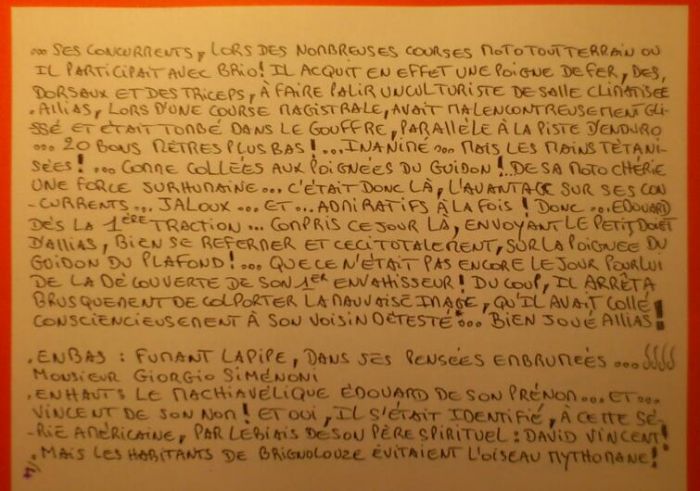 ... SES CONCURRENTS, LORS DES NOMBREUSES COURSES MOTO TOUT TERRAIN OU
IL PARTICIPAIT AVEC BRIO! IL ACQUIT EN EFFET UNE POIGNE DE FER, DES,
DORSAUX ET DES TRICEPS, À FAIRE PALIR UN CULTURISTE DE SALLE CLIMATISEE
. ALLIAS, LORS D'UNE COURSE MAGISTRALE, AVAIT MALENCONTREUSEMENT GLI-
SSÉ ET ÉTAIT TOMBÉ DANS LE GOUFFRE, PARALLÈLE À LA PISTE D'ENDURO
... 20 BONS MÈTRES PLUS BAS!... INANIMÉ ... MAIS LES MAINS TÉTANI-
SÉES! ... COMME COLLÉES AUX POIGNÉES DU GUIDON! DE SA MOTO CHÉRIE
UNE FORCE SURHUMAINE... C'ÉTAIT DONC LÀ, L'AVANTAGE SUR SES CON
-CURRENTS... JALOUX... ET... ADMIRATIFS À LA FOIS! DONC... EDOUARD
DÈS LA 1ÈRE TRACTION... COMPRIS CE JOUR LÀ, ENVOYANT LE PETIT DOIGT
D'ALLIAS, BIEN SE REFERMER ET CECI TOTALEMENT, SUR LA POIGNÉE DU
GUIDON DU PLAFOND!... QUE CE N'ÉTAIT PAS ENCORE LE JOUR POUR LUI
DE LA DÉCOUVERTE DE SON 1ER ENVAHISSEUR! DU COUP, IL ARRÊTA
BRUSQUEMENT DE COLPORTER LA MAUVAISE IMAGE, QU'IL AVAIT COLLÉ
CONSCIENCIEUSEMENT À SON VOISIN DÉTESTÉ... BIEN JOUÉ ALLIAS!
. EN BAS : FUMANT LA PIPE, DANS SES PENSÉES EMBRUMÉES ...
MONSIEUR GIORGIO SIMÉNONI
. EN HAUT: LE MACHIAVÉLIQUE ÉDOUARD DE SON PRÉNOM... ET...
VINCENT DE SON NOM! ET OUI, IL S'ÉTAIT IDENTIFIÉ, À CETTE SÉ-
RIE AMÉRICAINE, PAR LE BIAIS DE SON PÈRE SPIRITUEL : DAVID VINCENT!
. MAIS LES HABITANTS DE BRIGNOLOUZE ÉVITAIENT L'OISEAU MYTHOMANE!